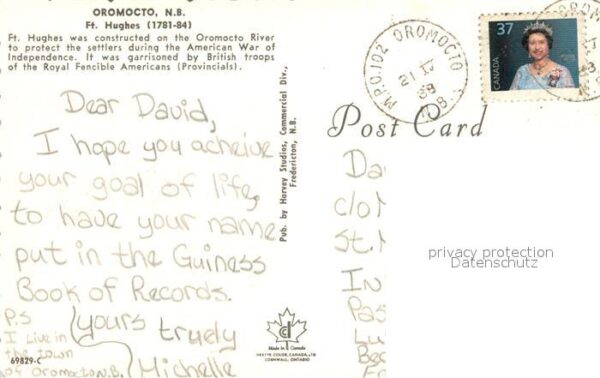 OROMOCTO, N.B.
Ft. Hughes (1781-84)
Ft. Hughes was constructed on the Oromocto River
to protect the settlers during the American War of
Independence. It was garrisoned by British troops
of the Royal Fencible Americans (Provincials).
Dear David,
I hope you acheive
your goal of life,
to have your name
put in the Guiness
Book of Records.
yours truely
Michelle
P.S
I live in
the town
of Oromocto N.B.
69829-C
Pub. by Harvey Studios, Commercial Div.,
Fredericton, N.B.
Made in Canada
CORNWALL, ONTARIO
Post Card
M.P.O. 102 OROMOCTO
N.B.
37
CANADA
Da
c/o
St.
In
Pas
Lu
privacy protection
Datenschutz